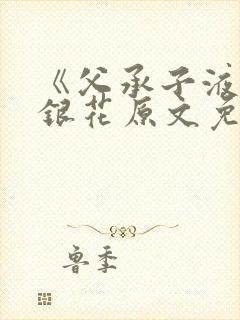 《父承子液
銀花原文免
鲁季